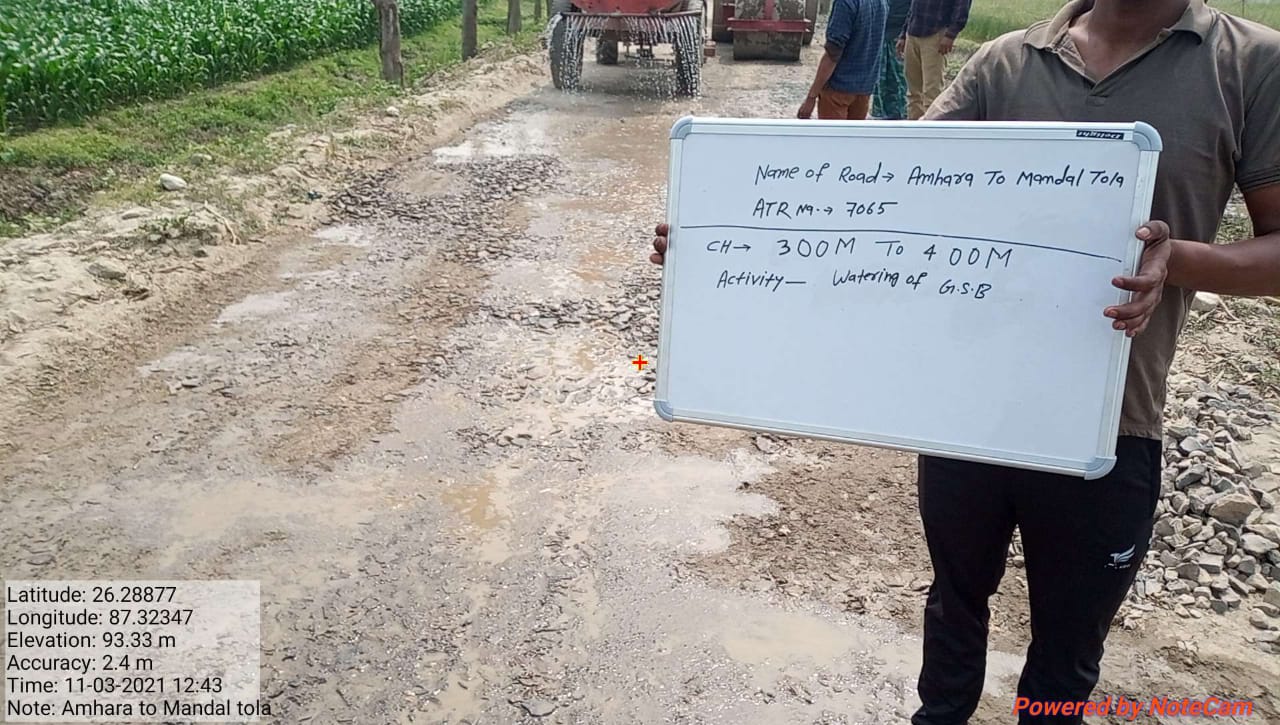 Delight
Name of Road → Amhara To Mandal Tola
ATR No. → 7065
CH → 300M To 400M
Activity — Watering of G.S.B
Latitude: 26.28877
Longitude: 87.32347
Elevation: 93.33 m
Accuracy: 2.4 m
Time: 11-03-2021 12:43
Note: Amhara to Mandal tola
Powered by NoteCam